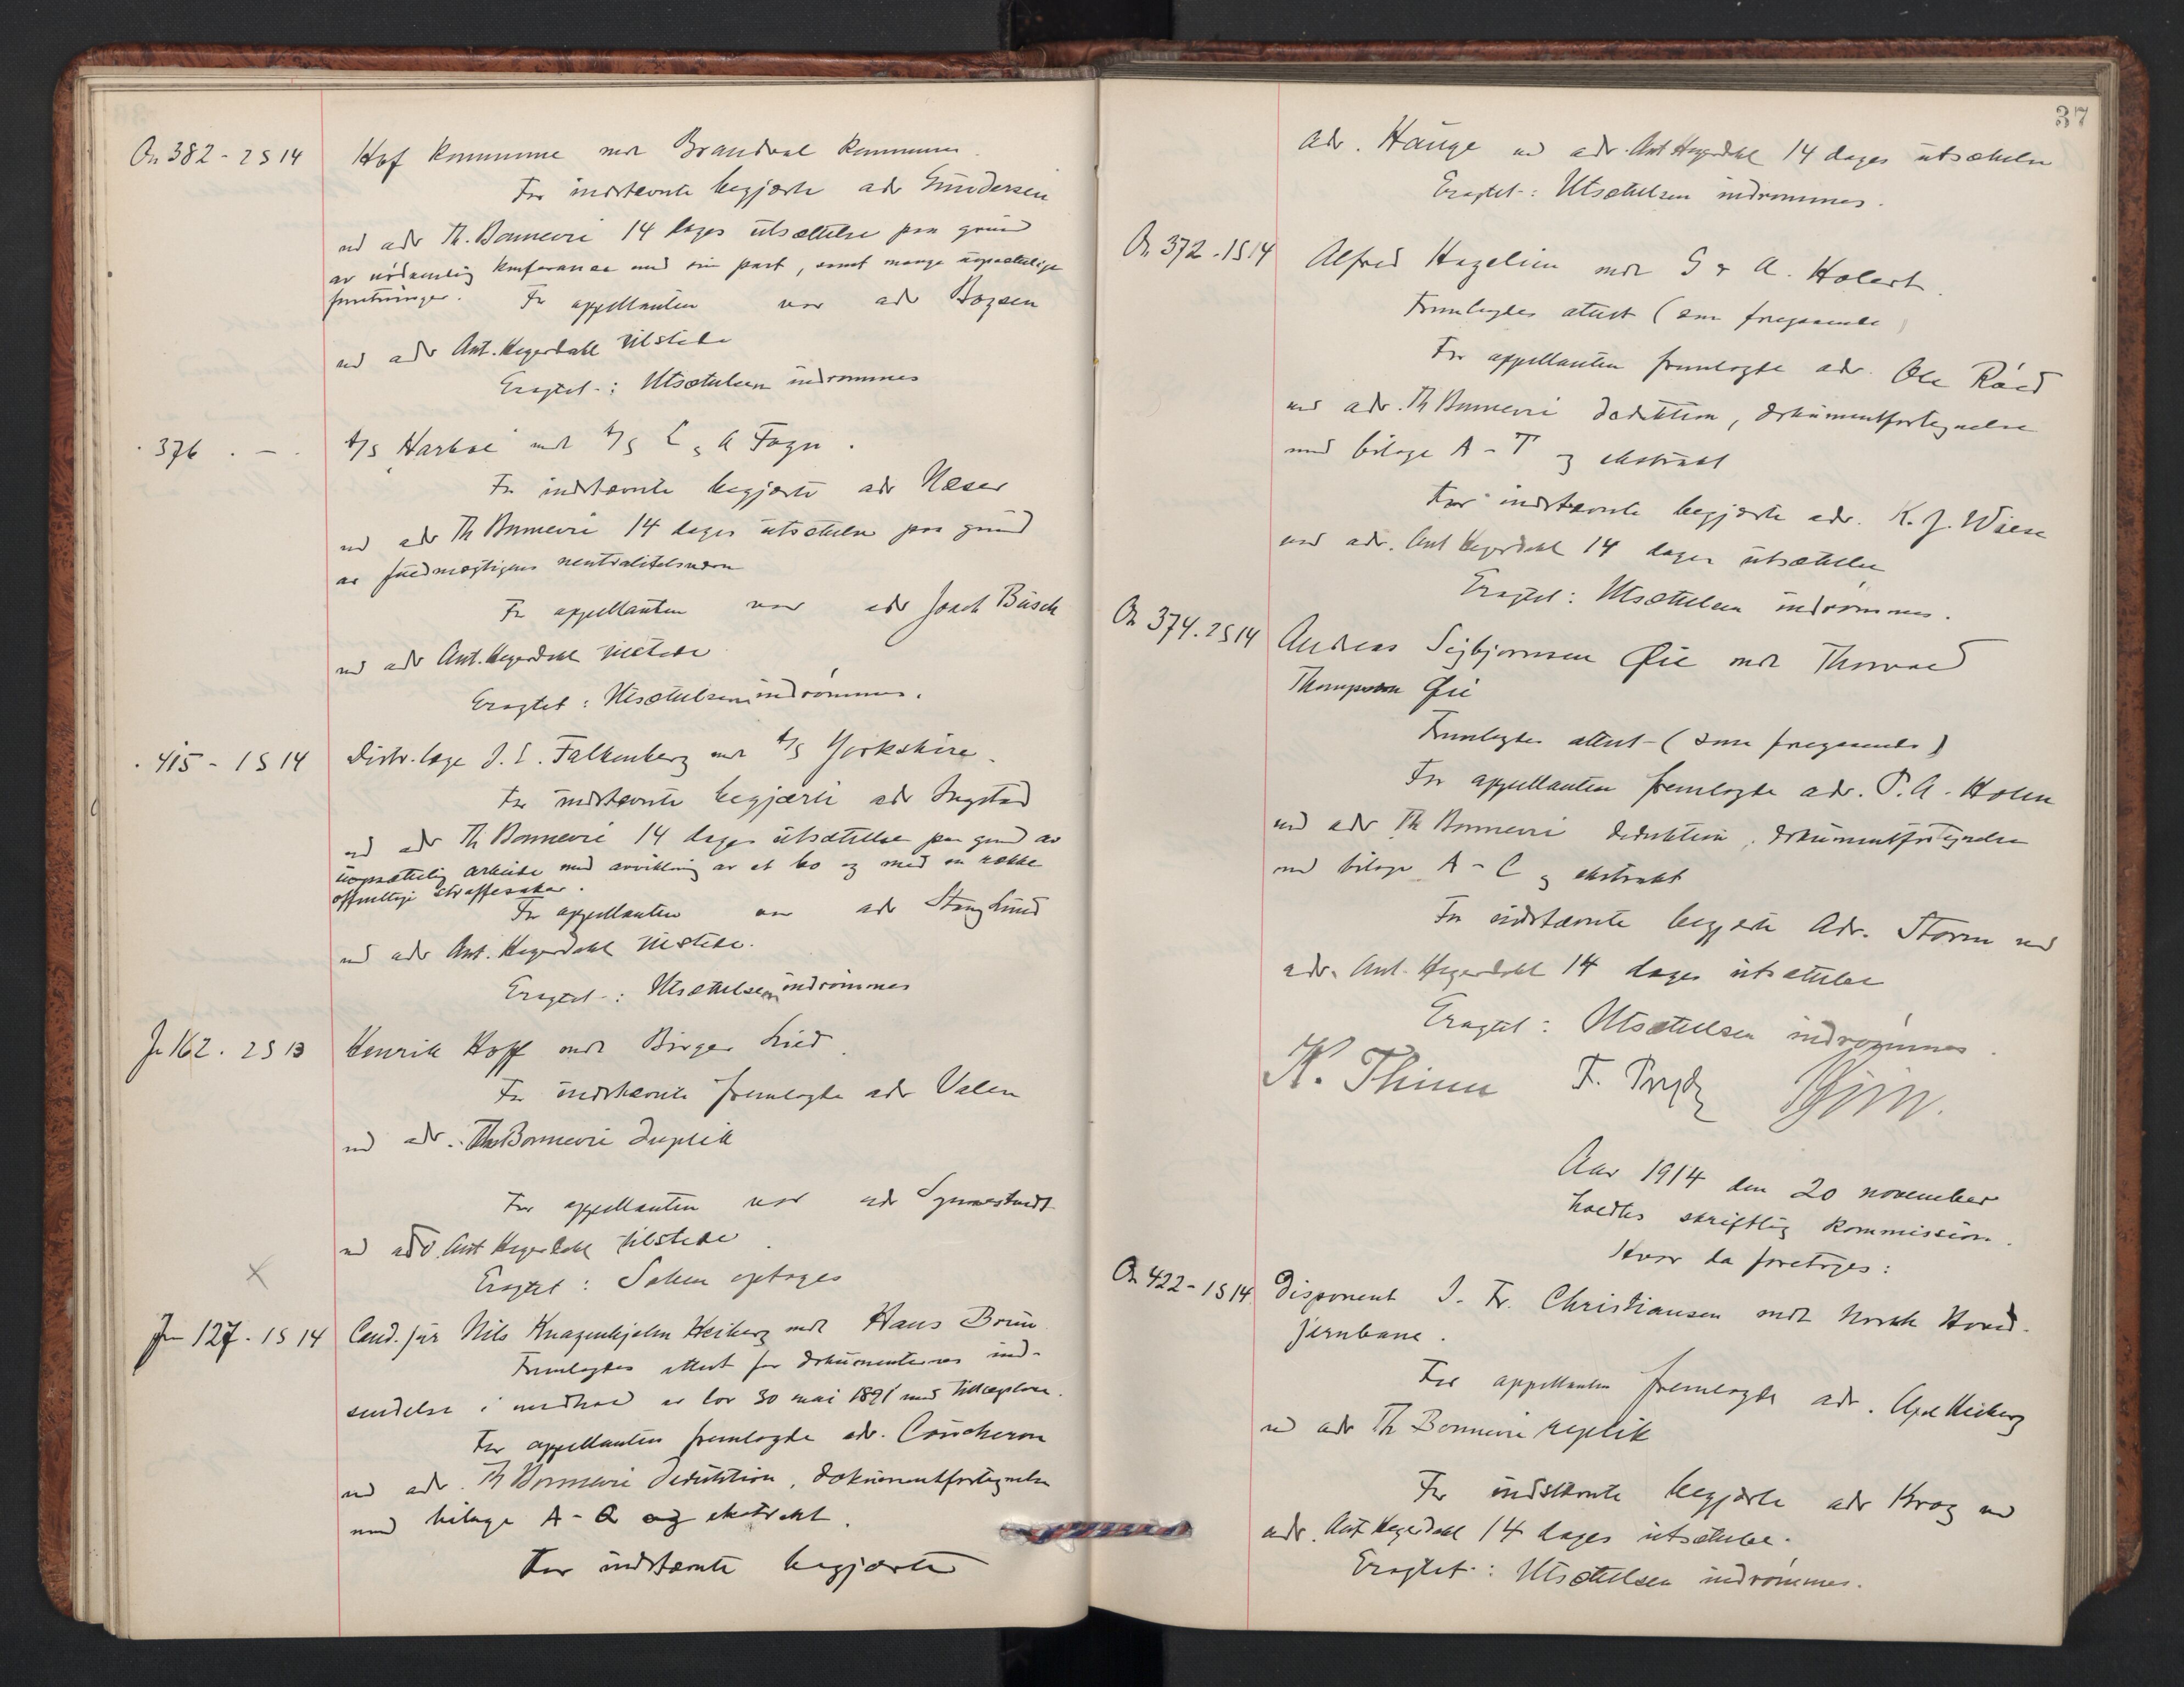 On 382 - 2 S 14 Hof kommune mot Brandval kommune.
For indstevnte begjærte adv Gundersen
ved adv Th. Bonnevie 14 dages utsættelse paa grund
av nödvendig konferanse med sin part, samt mange uopsættelige
forretninger. For appellanten var adv Bogsen
ved adv Ant. Hegerdahl tilstede
Eragtet: Utsættelsen indrømmes
" 376 " - " A/S Harboe mot A/S L. & A Fogn.
For indstevnte begjærte adv Næser
ved adv Th Bonnevie 14 dages utsættelse paa grund
av fuldmægtigens neutralitetsværn
For appellanten var adv Joach Busch
ved adv Ant. Hegerdahl tilstede
Eragtet: Utsættelsen indrømmes.
" 415 - 1 S 14 Distr. læge J. E. Falkenberg mot A/S Yorkshire.
For indstevnte begjærte adv Ingstad
ved adv Th Bonnevie 14 dages utsættelse paa grund av
uopsættelig arbeide med avvikling av et bo og med en række
offentlige straffesaker.
For appellanten var adv Stang Lund
ved adv Ant. Hegerdahl tilstede.
Eragtet: Utsættelsen indrømmes
Jn 162 . 2 S 13 Henrik Hoff mot Birger Lied.
For indstevnte fremlagde adv Valen
ved adv. Th Bonnevie duplik
For appellanten var adv Synnestvedt
ved adv. Ant Hegerdahl tilstede.
Eragtet: Saken optages
X
Jn 127. 1 S 14 Cand. jur Nils Knagenhjelm Heiberg mot Hans Brun
Fremlagdes attest for dokumenternes ind-
sendelse i medhold av lov 30 mai 1891 med tillægslove.
For appellanten fremlagde adv. Coucheron
ved adv. Th Bonnevie deduktion, dokumentfortegnelse
med bilage A - Q og ekstrakt.
For indstevnte begjærte
37
adv. Hauge ved adv. Ant Hegerdahl 14 dages utsættelse
Eragtet: Utsættelsen indrømmes.
On 372 . 1 S 14 Alfred Hagelien mot G & A. Holert.
Fremlagdes attest (som foregaaende)
For appellanten fremlagde adv. Ole Röed
ved adv. Th Bonnevie deduktion, dokumentfortegnelse
med bilage A - T og ekstrakt
For indstevnte begjærte adv. K. J. Wiese
ved adv. Ant Hegerdahl 14 dages utsættelse
Eragtet: Utsættelsen indrømmes.
On 374. 2 S 14 Andreas Sigbjørnsen Øie mot Thorvald
Thompson Øie
Fremlagdes attest (som foregaaende)
For appellanten fremlagde adv. P. A. Holm
ved adv Th Bonnevie deduktion, dokumentfortegnelse
med bilage A - C og ekstrakt
For indstævnte begjærte Adv. Storm ved
adv. Ant. Hegerdahl 14 dages utsættelse
Eragtet: Utsættelsen indrømmes.
K. Thinn F. Prydz
Aar 1914 den 20 november
holdtes skriftlig kommission.
Hvor da foretoges:
On 422 - 1 S 14. Disponent J. Fr. Christiansen mot Norsk Hoved-
jernbane.
For appellanten fremlagde adv. Axel Heiberg
ved adv Th Bonnevie replik
For indstevnte begjærte adv Krog ved
adv. Ant Hegerdahl 14 dages utsættelse.
Eragtet: Utsættelsen indrømmes.